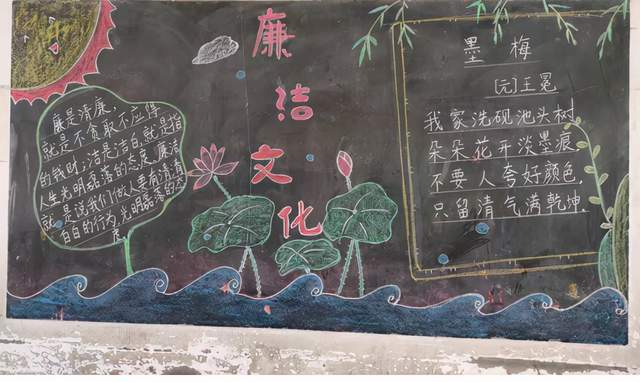 廉洁文化
廉是清廉，
就是不贪取不应得
的钱财；洁是洁白，就是指
人生光明磊落的态度。廉洁
就是说我们做人要有清清
白白的行为，光明磊落的态
度。
墨梅
[元]王冕
我家洗砚池头树
朵朵花开淡墨痕
不要人夸好颜色，
只留清气满乾坤.